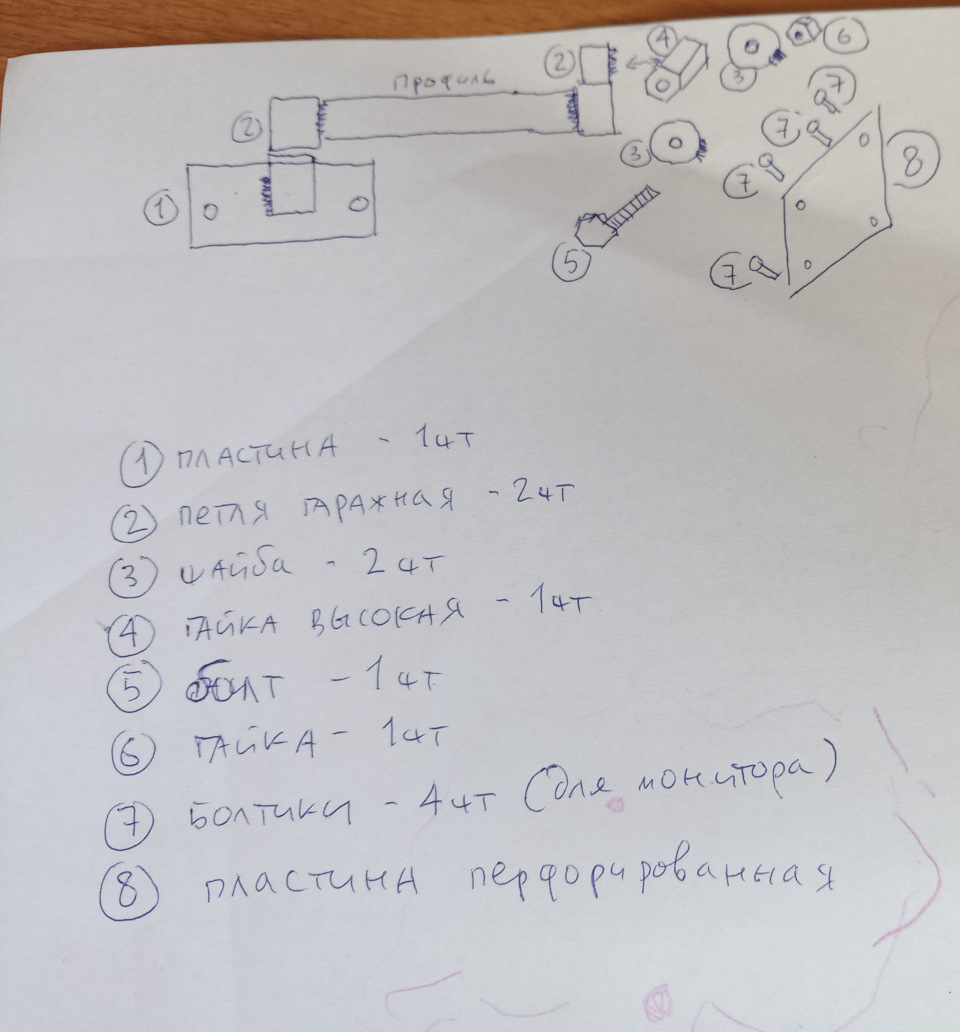 профиль
2
4
3
6
2
1
3
5
7
7
7
7
8
1 пластина - 1шт
2 петля гаражная - 2шт
3 шайба - 2шт
4 гайка высокая - 1шт
5 болт - 1шт
6 гайка - 1шт
7 болтики - 4шт (для монитора)
8 пластина перфорированная